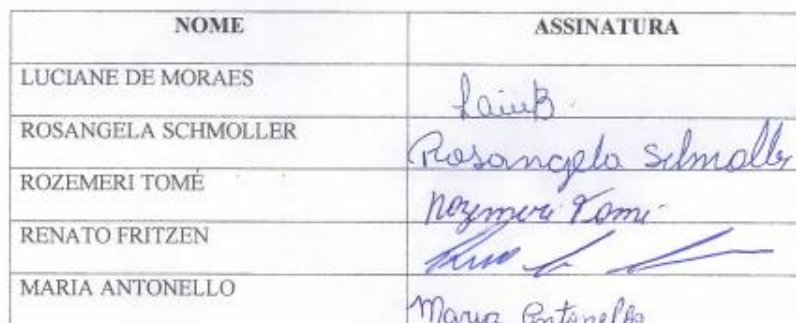 NOME ASSINATURA
LUCIANE DE MORAES
ROSANGELA SCHMOLLER Rosangela Schmoller
ROZEMERI TOMÉ Rozemeri Tomé
RENATO FRITZEN
MARIA ANTONELLO Maria Antonello